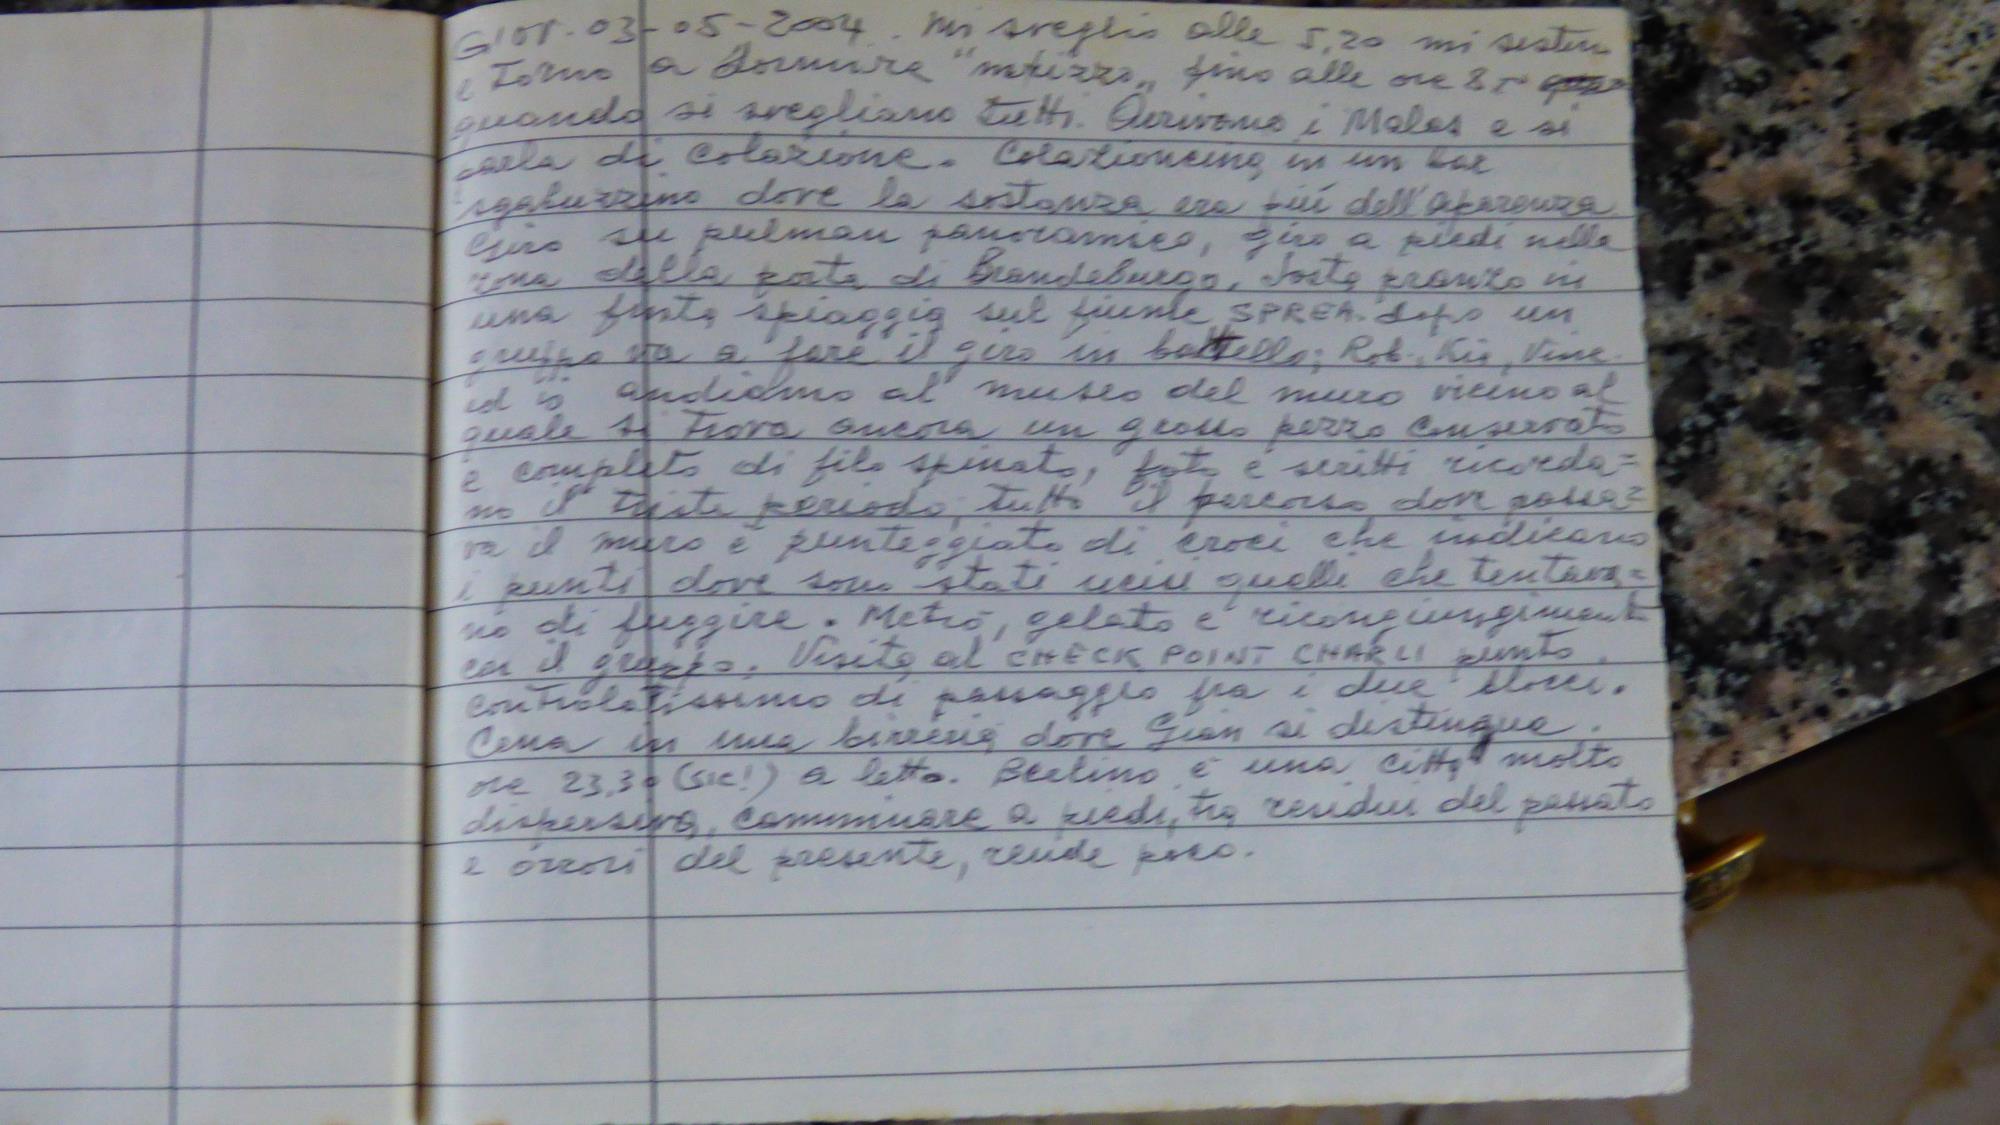 Gior. 03-05-2004. Mi sveglio alle 5,20 mi sistemo
e torno a dormire fino alle ore 8
quando si svegliano tutti. Arrivano i Malas e si
parla di colazione. Colazioncina in un bar
sgabuzzino dove la sostanza era più dell'aparenza.
Giro su pulman panoramico, giro a piedi nella
zona della porta di Brandeburgo. Sosta pranzo in
una finta spiaggia sul fiume SPREA. Dopo un
gruppo va a fare il giro in battello; Rob., Kia, Vinc.
ed io andiamo al museo del muro vicino al
quale si trova ancora un grosso pezzo conservato
e completo di filo spinato, foto e scritti ricorda=
no il triste periodo; tutto il percorso dove passa=
va il muro è punteggiato di croci che indicano
i punti dove sono stati ucisi quelli che tentava=
no di fuggire. Metrò, gelato e ricongiungimento
con il gruppo. Visita al CHECK POINT CHARLI punto
controlatissimo di passaggio fra i due blocci.
Cena in una birreria dove Gian si distingue.
ore 23,30 (sic!) a letto. Berlino è una città molto
dispersiva, camminare a piedi, tra residui del passato
e orrori del presente, rende poco.